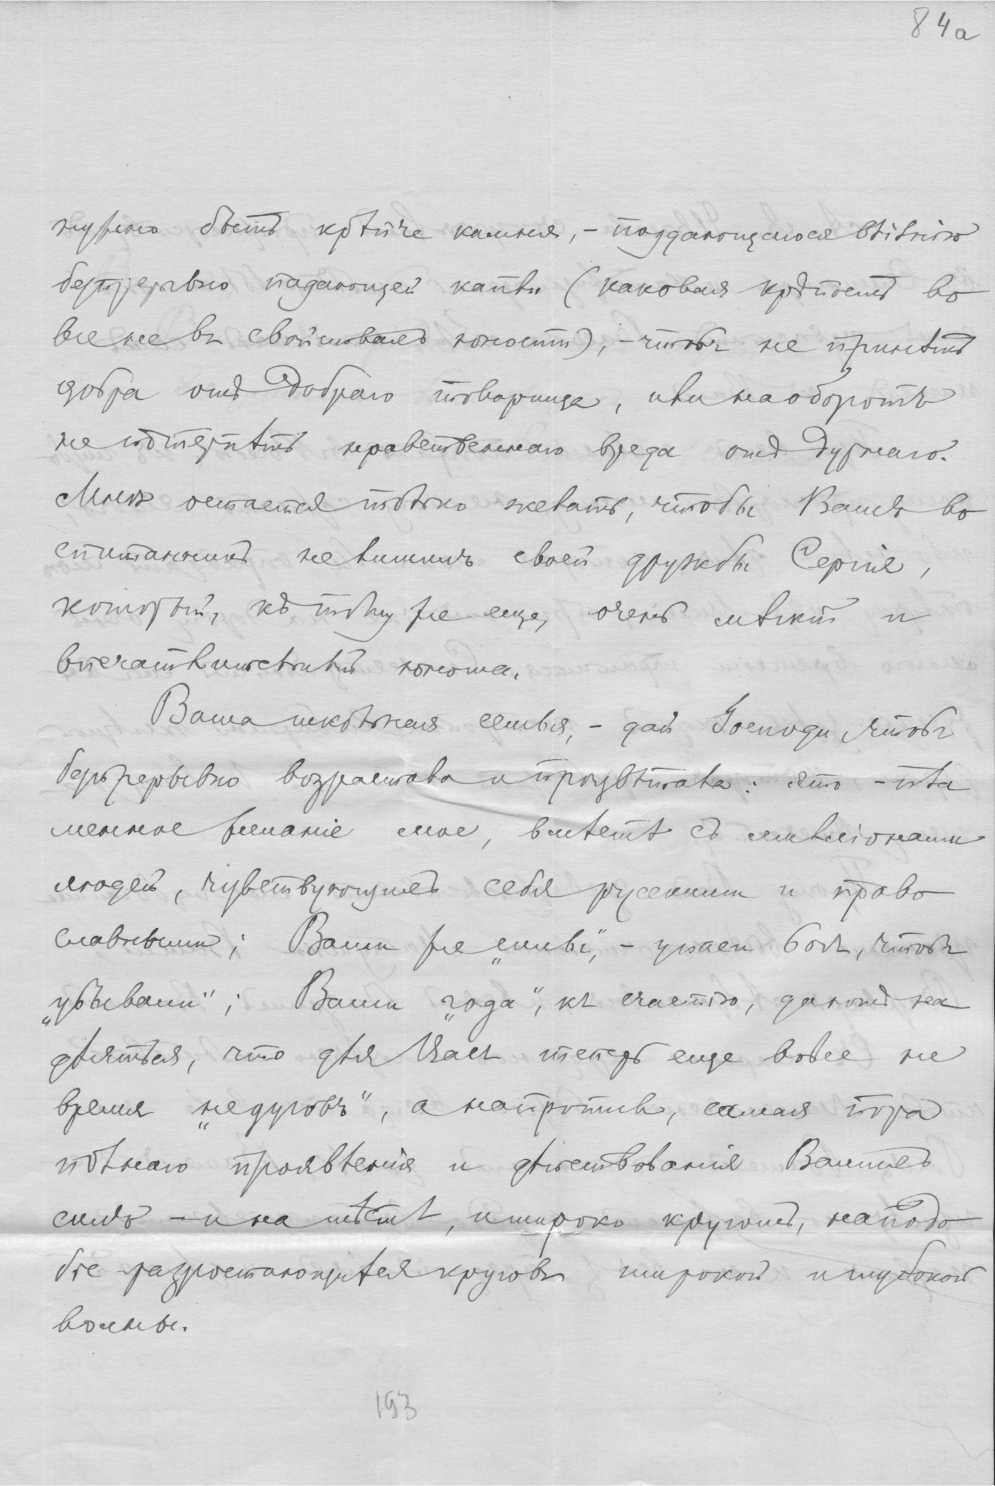 84а
нужно быть крѣпче камня, – поддающегося вліянію
безпрерывно падающей капли (каковая крѣпость во
все не въ свойствахъ юности), – чтобъ не принять
добра отъ добраго товарища, или наоборотъ
не потерпѣть нравственнаго вреда отъ дурнаго.
Мнѣ остается только желать, чтобы Вашъ во
спитанникъ не лишилъ своей дружбы Сергія,
который, къ тому же еще, очень мягкій и
впечатлительный юноша.
Ваша школьная семья, – дай Господи, чтобъ
безпрерывно возрастала и процвѣтала: это – пла
менное желаніе мое, вмѣстѣ съ милліонами
людей, чувствующихъ себя русскими и право
славными; Ваши же „силы", – упаси Богъ, чтобъ
„убывали"; Ваши „года", къ счастію, даютъ на
дѣяться, что для Васъ теперь еще вовсе не
время „недуговъ", а напротивъ, самая пора
полнаго проявленія и дѣйствованія Вашихъ
силъ – и на мѣстѣ, и широко кругомъ, наподо
біе разростающихся круговъ широкой и глубокой
волны.
193